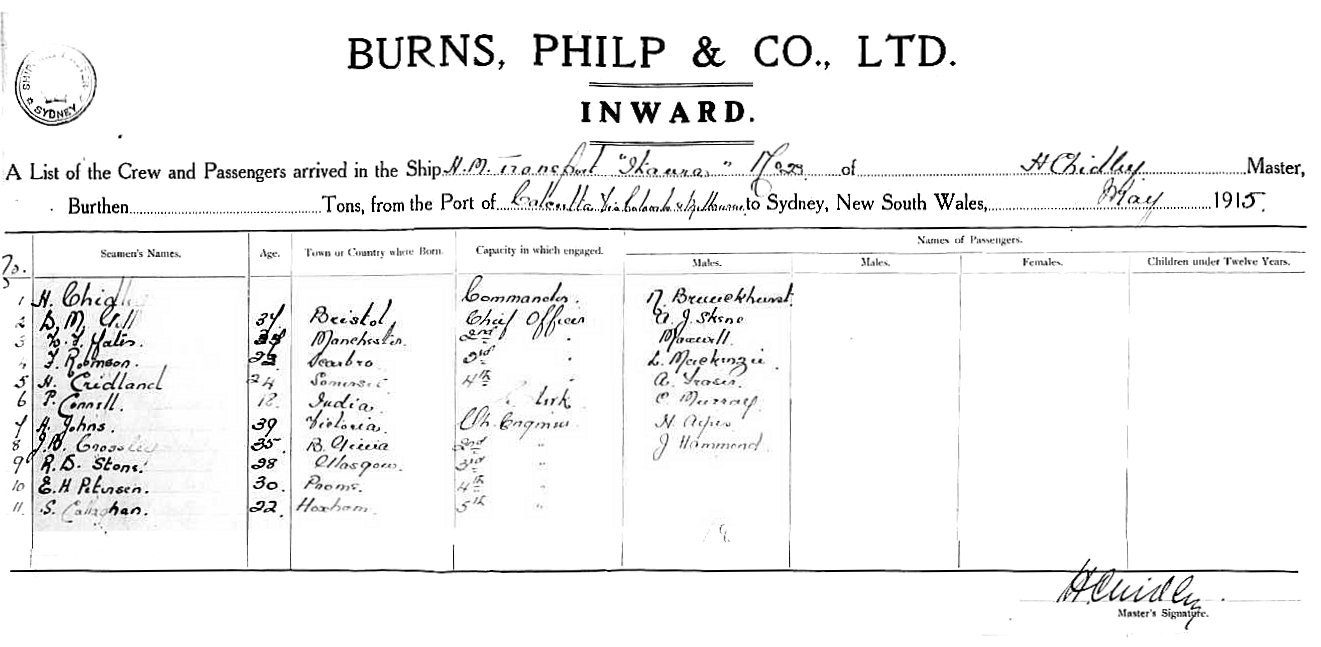 BURNS, PHILP & CO., LTD.
INWARD.
SYDNEY
A List of the Crew and Passengers arrived in the Ship H.M. Transport "Itaura" No 23 of H Chidley Master,
Burthen Tons, from the Port of Calcutta Via Melbourne to Sydney, New South Wales, May 1915.
No. Seamen's Names. Age. Town or Country where Born. Capacity in which engaged. Names of Passengers.
Males. Males. Females. Children under Twelve Years.
1 H. Chidley Commander.
2 D. M. Gill 34 Bristol Chief Officer A. J. Skene
3 Yates. Manchester. 2nd " Maxwell.
4 J. Robinson. 22 Scarbro 3rd " L. Mackenzie
5 H. Cridland 24 Somerset 4th " A. Fraser.
6 P. Connell. 18 India. Clerk C. Murray
7 A. Johns. 39 Victoria. Ch. Engineer
8 J. Crossley 35. 2nd " J Hammond
9 R. D. Stone. 28 Glasgow. 3rd "
10 E. H Petersen. 30. 4th "
11. S. Callaghan. 22. Horsham. 5th "
H Chidley
Master's Signature.